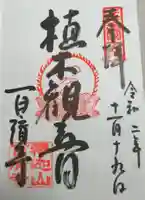 奉拝
令和二年
十一月十九日
植木觀音
百濟寺